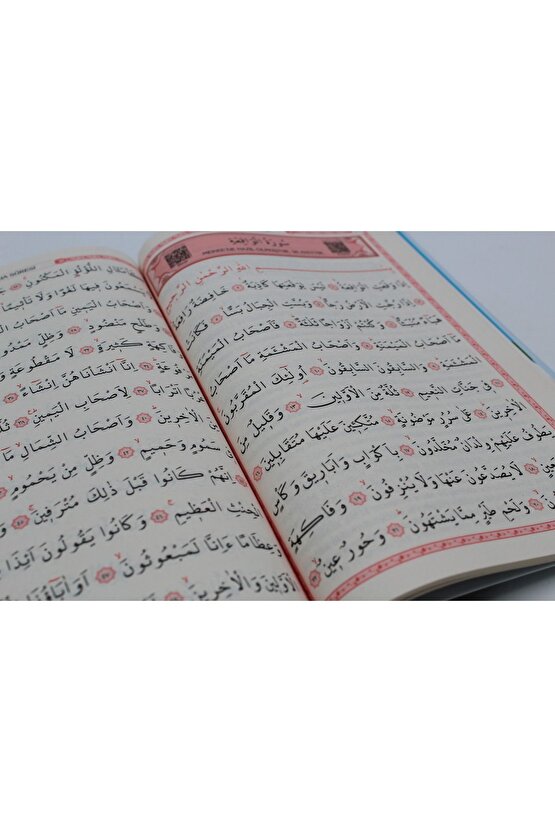 سُورَةُ الْوَاقِعَةِ
بِسْمِ اللّٰهِ الرَّحْمٰنِ الرَّحِيمِ
اِذَا وَقَعَتِ الْوَاقِعَةُ ﴿١﴾ لَيْسَ لِوَقْعَتِهَا كَاذِبَةٌ ﴿٢﴾ خَافِضَةٌ رَافِعَةٌ
اِذَا رُجَّتِ الْاَرْضُ رَجًّا ﴿٤﴾ وَبُسَّتِ الْجِبَالُ بَسًّا ﴿٥﴾ فَكَانَتْ
هَبَٓاءً مُنْبَثًّا ﴿٦﴾ وَكُنْتُمْ اَزْوَاجًا ثَلٰثَةً ﴿٧﴾ فَاَصْحَابُ الْمَيْمَنَةِ
مَٓا اَصْحَابُ الْمَيْمَنَةِ ﴿٨﴾ وَاَصْحَابُ الْمَشْـَٔمَةِ مَٓا اَصْحَابُ
الْمَشْـَٔمَةِ ﴿٩﴾ وَالسَّابِقُونَ السَّابِقُونَ ﴿١٠﴾ اُولٰٓئِكَ الْمُقَرَّبُونَ
فِي جَنَّاتِ النَّعِيمِ ﴿١٢﴾ ثُلَّةٌ مِنَ الْاَوَّلِينَ ﴿١٣﴾ وَقَلِيلٌ مِنَ
الْاٰخِرِينَ ﴿١٤﴾ عَلٰى سُرُرٍ مَوْضُونَةٍ ﴿١٥﴾ مُتَّكِـِٔينَ عَلَيْهَا مُتَقَابِلِينَ ﴿١٦﴾
يَطُوفُ عَلَيْهِمْ وِلْدَانٌ مُخَلَّدُونَ ﴿١٧﴾ بِاَكْوَابٍ وَاَبَارِيقَ وَكَأْسٍ
لَا يُصَدَّعُونَ عَنْهَا وَلَا يُنْزِفُونَ ﴿١٩﴾ وَفَاكِهَةٍ
وَلَحْمِ طَيْرٍ مِمَّا يَشْتَهُونَ ﴿٢١﴾ وَحُورٌ عِينٌ ﴿٢٢﴾
SÛRESİ
اللُّؤْلُؤِ الْمَكْنُونِ
فِيهَا لَغْوًا وَلَا تَأْثِيمًا
وَطَلْحٍ مَنْضُودٍ ﴿٢٩﴾ وَظِلٍّ
كَثِيرَةٍ ﴿٣٢﴾ لَا مَقْطُوعَةٍ
اِنَّٓا اَنْشَأْنَاهُنَّ اِنْشَٓاءً
اَتْرَابًا ﴿٣٧﴾ لِاَصْحَابِ الْيَمِينِ
الْاٰخِرِينَ ﴿٤٠﴾ وَاَصْحَابُ الشِّمَالِ مَٓا
سَمُومٍ وَحَمِيمٍ ﴿٤٢﴾ وَظِلٍّ مِنْ يَحْمُومٍ
اِنَّهُمْ كَانُوا قَبْلَ ذٰلِكَ مُتْرَفِينَ ﴿٤٥﴾
الْحِنْثِ الْعَظِيمِ ﴿٤٦﴾ وَكَانُوا يَقُولُونَ اَئِذَا
وَعِظَامًا ءَاِنَّا لَمَبْعُوثُونَ ﴿٤٧﴾ اَوَاٰبَٓاؤُنَا
الْاَوَّلِينَ وَالْاٰخِرِينَ